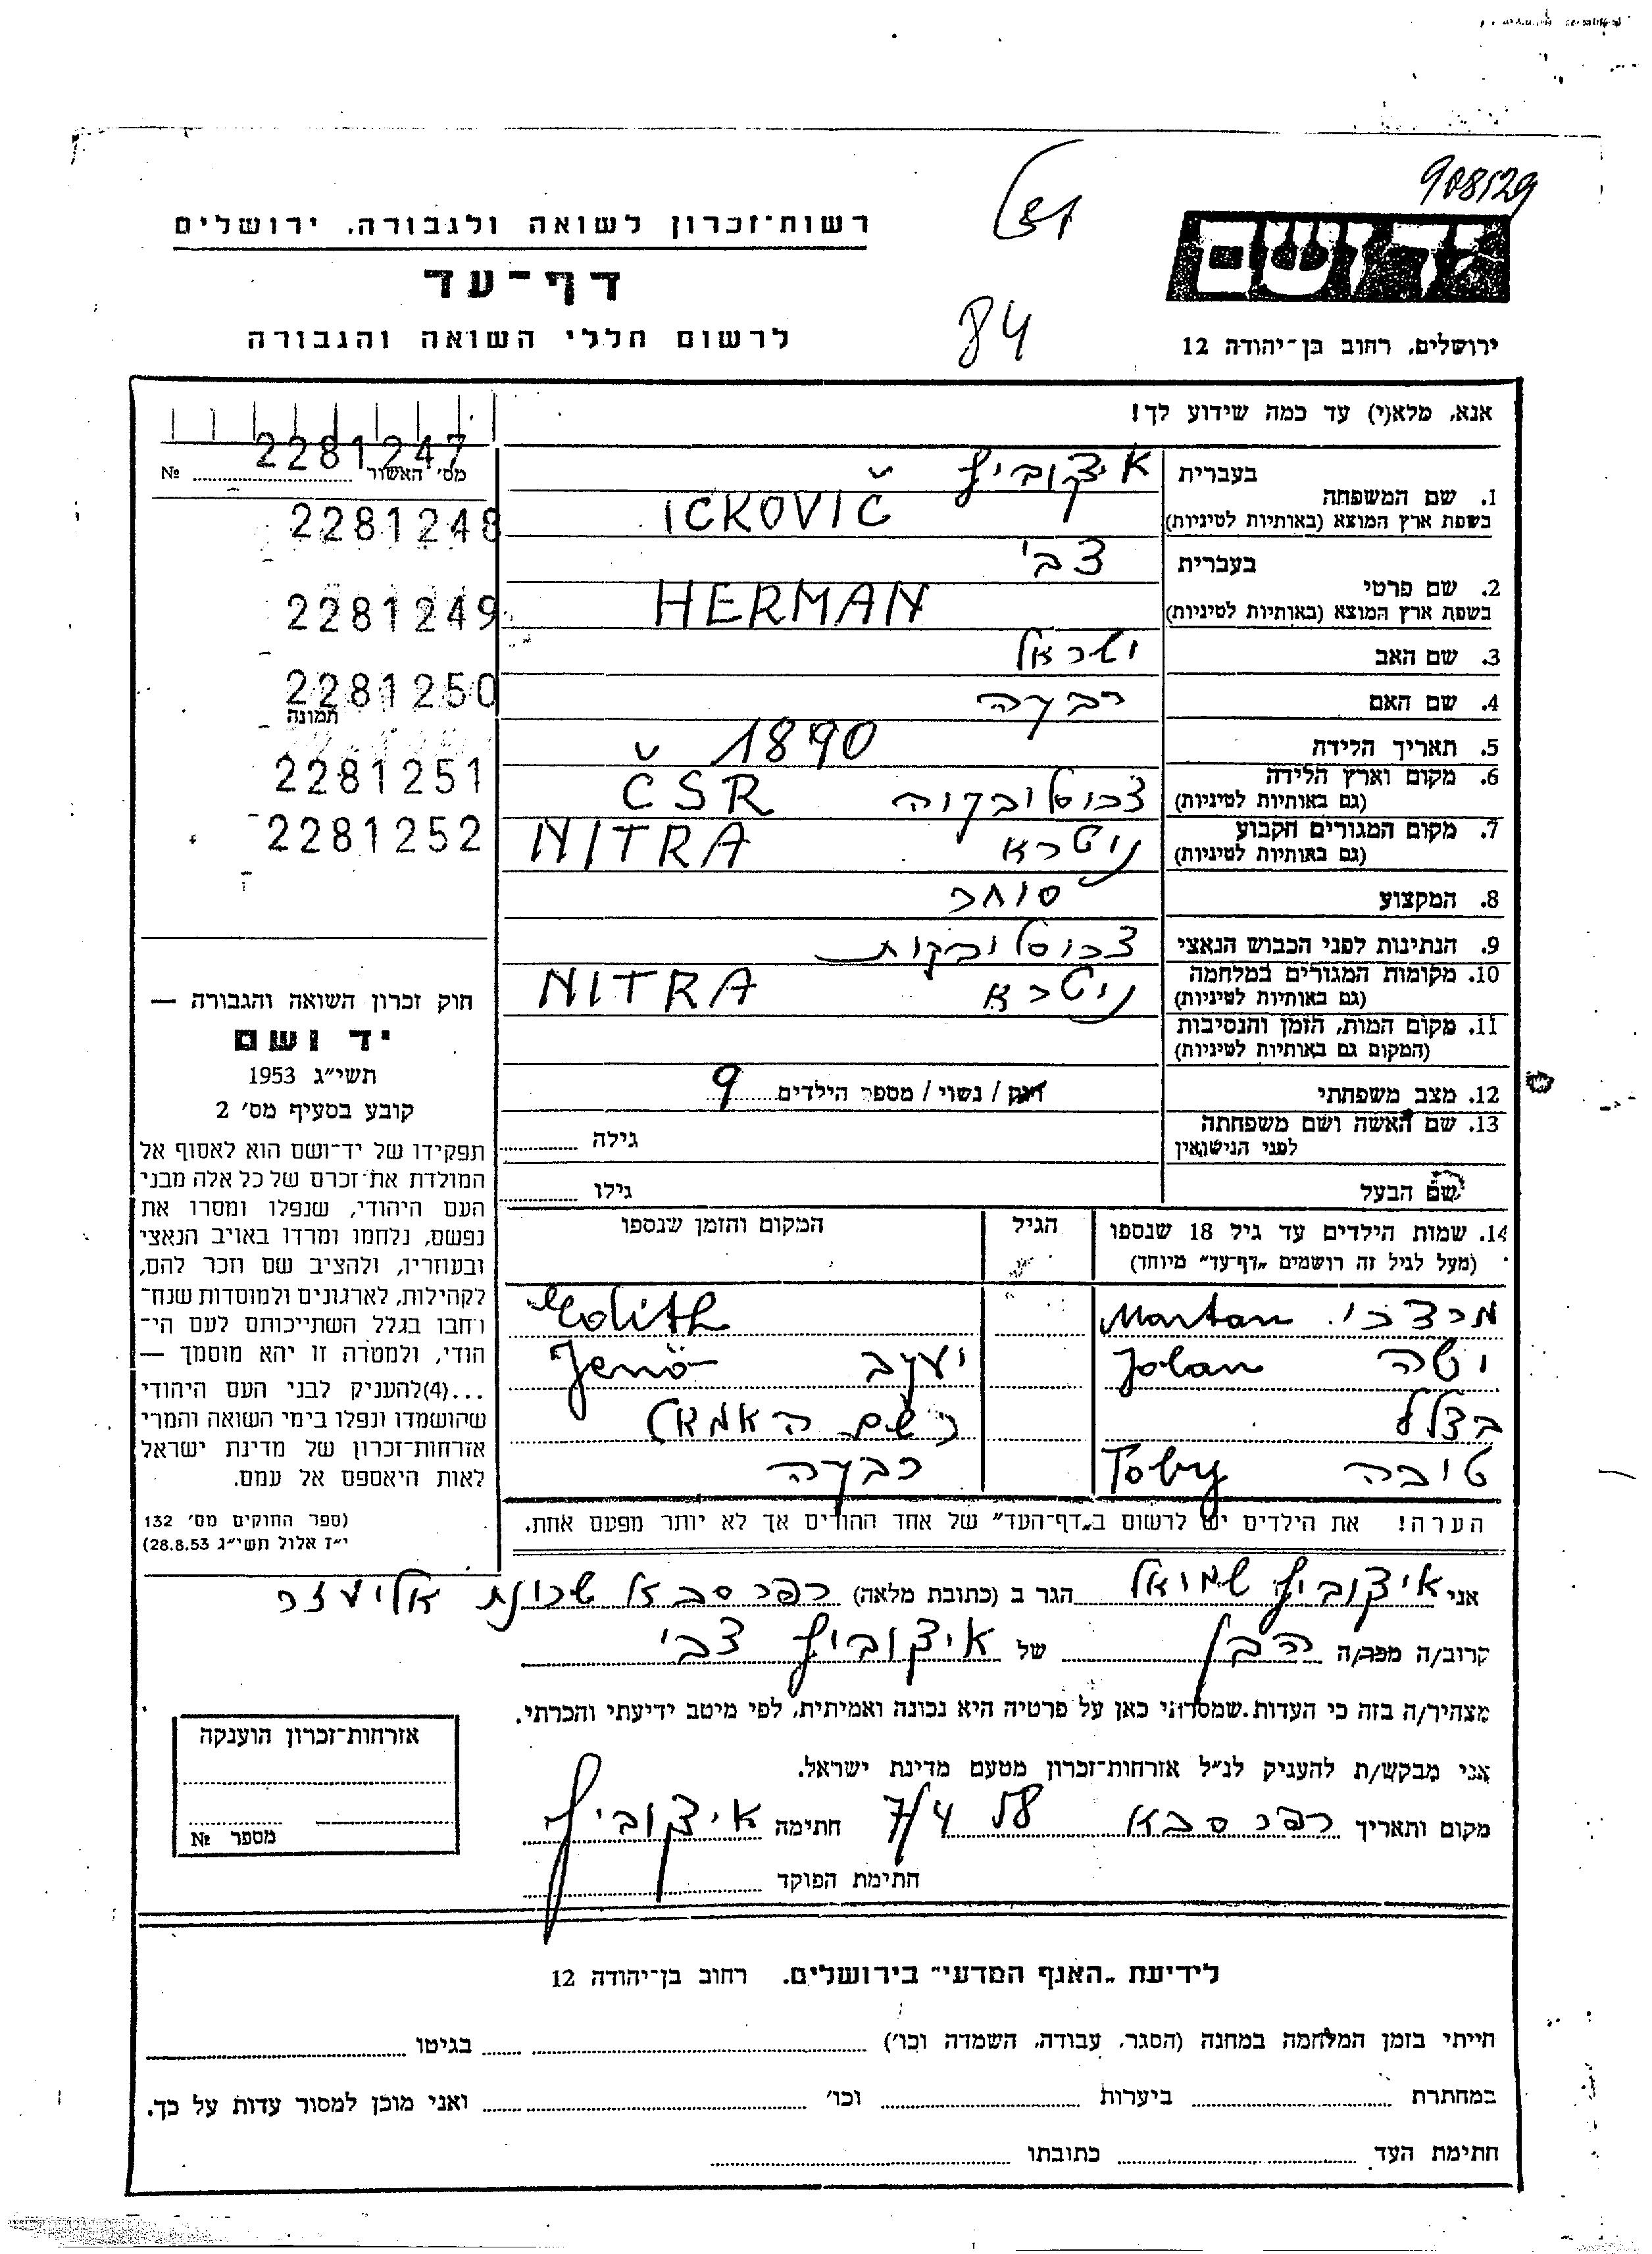 908129
81
84
רשות־זכרון לשואה ולגבורה. ירושלים
דף־עד
לרשום חללי השואה והגבורה
יד ושם
ירושלים. רחוב בן־יהודה 12
אנא. מלא(י) עד כמה שידוע לך!
2281247
מס׳ האשור № ..........
2281248
2281249
2281250
תמונה
2281251
2281252
בעברית איצקוביץ
1. שם המשפחה
בשפת ארץ המוצא (באותיות לטיניות) ICKOVIČ
בעברית צבי
2. שם פרטי
בשפת ארץ המוצא (באותיות לטיניות) HERMAN
3. שם האב ישראל
4. שם האם רבקה
5. תאריך הלידה 1890
6. מקום וארץ הלידה צכוסלובקיה ČSR
(גם באותיות לטיניות)
7. מקום המגורים הקבוע ניטרא NITRA
(גם באותיות לטיניות)
8. המקצוע סוחר
9. הנתינות לפני הכבוש הנאצי צכוסלובקית
10. מקומות המגורים במלחמה ניטרא NITRA
(גם באותיות לטיניות)
11. מקום המות, הזמן והנסיבות
(המקום גם באותיות לטיניות)
12. מצב משפחתי רווק / נשוי / מספר הילדים 9
13. שם האשה ושם משפחתה גילה
לפני הנישואין
שם הבעל גילו
14. שמות הילדים עד גיל 18 שנספו הגיל המקום והזמן שנספו
(מעל לגיל זה רושמים „דף־עד” מיוחד)
מרדכי Martan Edith
יטה Jolan יעקב Jenö
בצלל
טובה Toby רבקה
הערה! את הילדים יש לרשום ב„דף־העד” של אחד ההורים אך לא יותר מפעם אחת.
חוק זכרון השואה והגבורה —
יד ושם
תשי״ג 1953
קובע בסעיף מס׳ 2
תפקידו של יד־ושם הוא לאסוף אל
המולדת את זכרם של כל אלה מבני
העם היהודי, שנפלו ומסרו את
נפשם, נלחמו ומרדו באויב הנאצי
ובעוזריו, ולהציב שם וזכר להם,
לקהילות, לארגונים ולמוסדות שנח־
רבו בגלל השתייכותם לעם הי־
הודי, ולמטרה זו יהא מוסמך —
...(4)להעניק לבני העם היהודי
שהושמדו ונפלו בימי השואה והמרי
אזרחות־זכרון של מדינת ישראל
לאות היאספם אל עמם.
(ספר החוקים מס׳ 132
י״ז אלול תשי״ג 28.8.53)
אני איצקוביץ שמואל הגר ב (כתובת מלאה) כפר סבא שכונת אליעזר
קרוב/ה מפר/ה הבן של איצקוביץ צבי
מצהיר/ה בזה כי העדות שמסרתי כאן על פרטיה היא נכונה ואמיתית. לפי מיטב ידיעתי והכרתי.
אני מבקש/ת להעניק לנ״ל אזרחות־זכרון מטעם מדינת ישראל.
מקום ותאריך כפר סבא 7/4 58 חתימה איצקוביץ
חתימת הפוקד
אזרחות־זכרון הוענקה
מספר №
לידיעת „האגף המדעי” בירושלים. רחוב בן־יהודה 12
הייתי בזמן המלחמה במחנה (הסגר. עבודה. השמדה וכו׳) בגיטו
במחתרת ביערות וכו׳ ואני מוכן למסור עדות על כך.
חתימת העד כתובתו